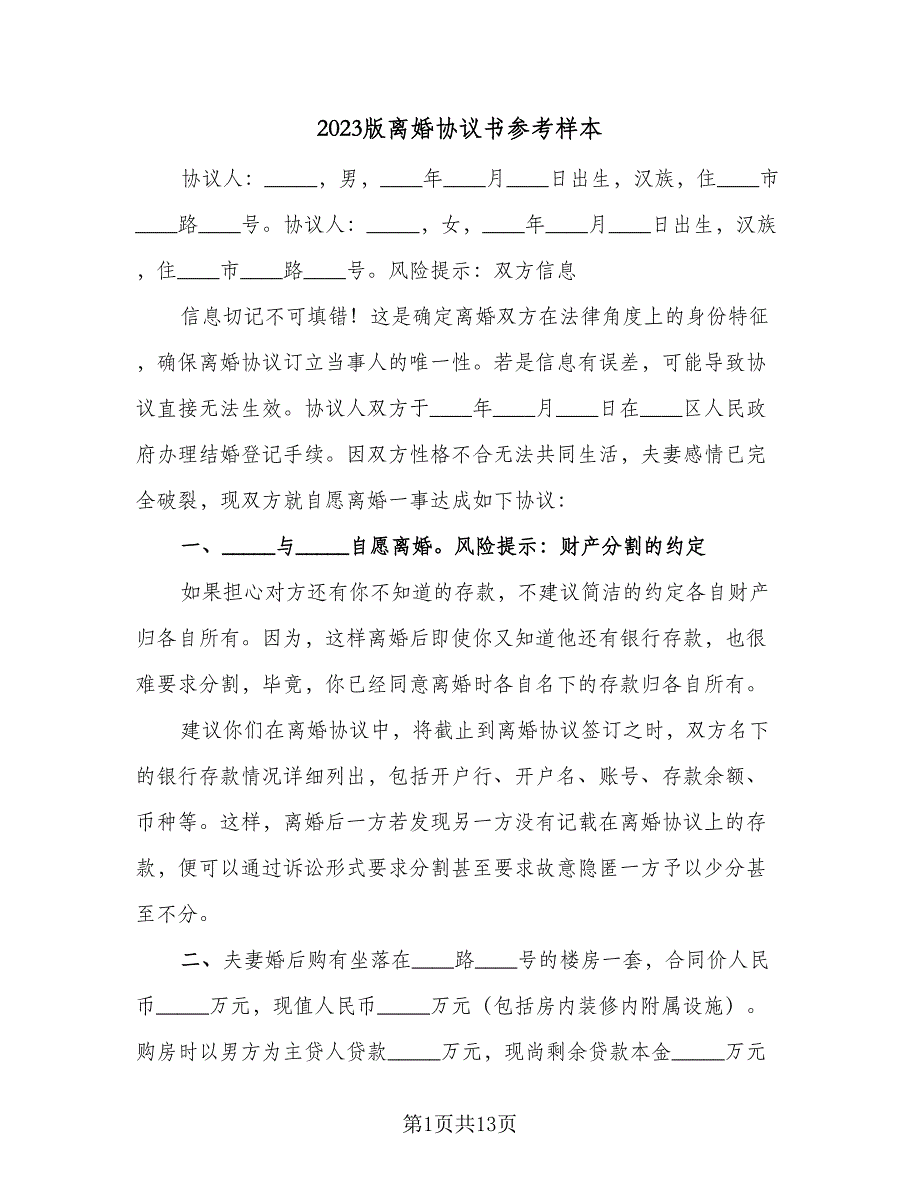 2023版离婚协议书参考样本
协议人：_____，男，____年____月____日出生，汉族，住____市
____路____号。协议人：_____，女，____年____月____日出生，汉族
，住____市____路____号。风险提示：双方信息
信息切记不可填错！这是确定离婚双方在法律角度上的身份特征
，确保离婚协议订立当事人的唯一性。若是信息有误差，可能导致协
议直接无法生效。协议人双方于____年____月____日在____区人民政
府办理结婚登记手续。因双方性格不合无法共同生活，夫妻感情已完
全破裂，现双方就自愿离婚一事达成如下协议：
一、_____与_____自愿离婚。风险提示：财产分割的约定
如果担心对方还有你不知道的存款，不建议简洁的约定各自财产
归各自所有。因为，这样离婚后即使你又知道他还有银行存款，也很
难要求分割，毕竟，你已经同意离婚时各自名下的存款归各自所有。
建议你们在离婚协议中，将截止到离婚协议签订之时，双方名下
的银行存款情况详细列出，包括开户行、开户名、账号、存款余额、
币种等。这样，离婚后一方若发现另一方没有记载在离婚协议上的存
款，便可以通过诉讼形式要求分割甚至要求故意隐匿一方予以少分甚
至不分。
二、夫妻婚后购有坐落在____路____号的楼房一套，合同价人民
币_____万元，现值人民币_____万元（包括房内装修内附属设施）。
购房时以男方为主贷人贷款_____万元，现尚剩余贷款本金_____万元
第1页共13页